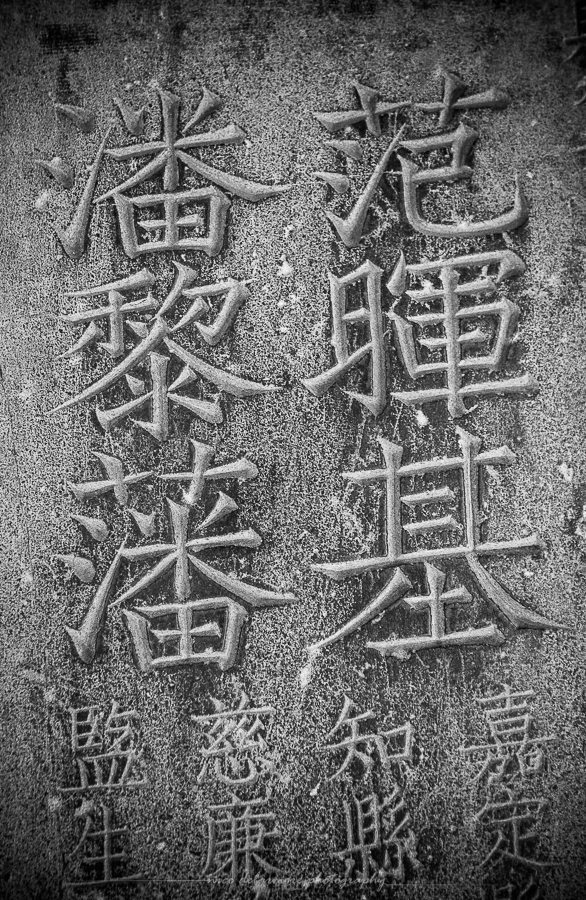 范暉基
嘉定
知縣
潘黎藩
慈廉
監生